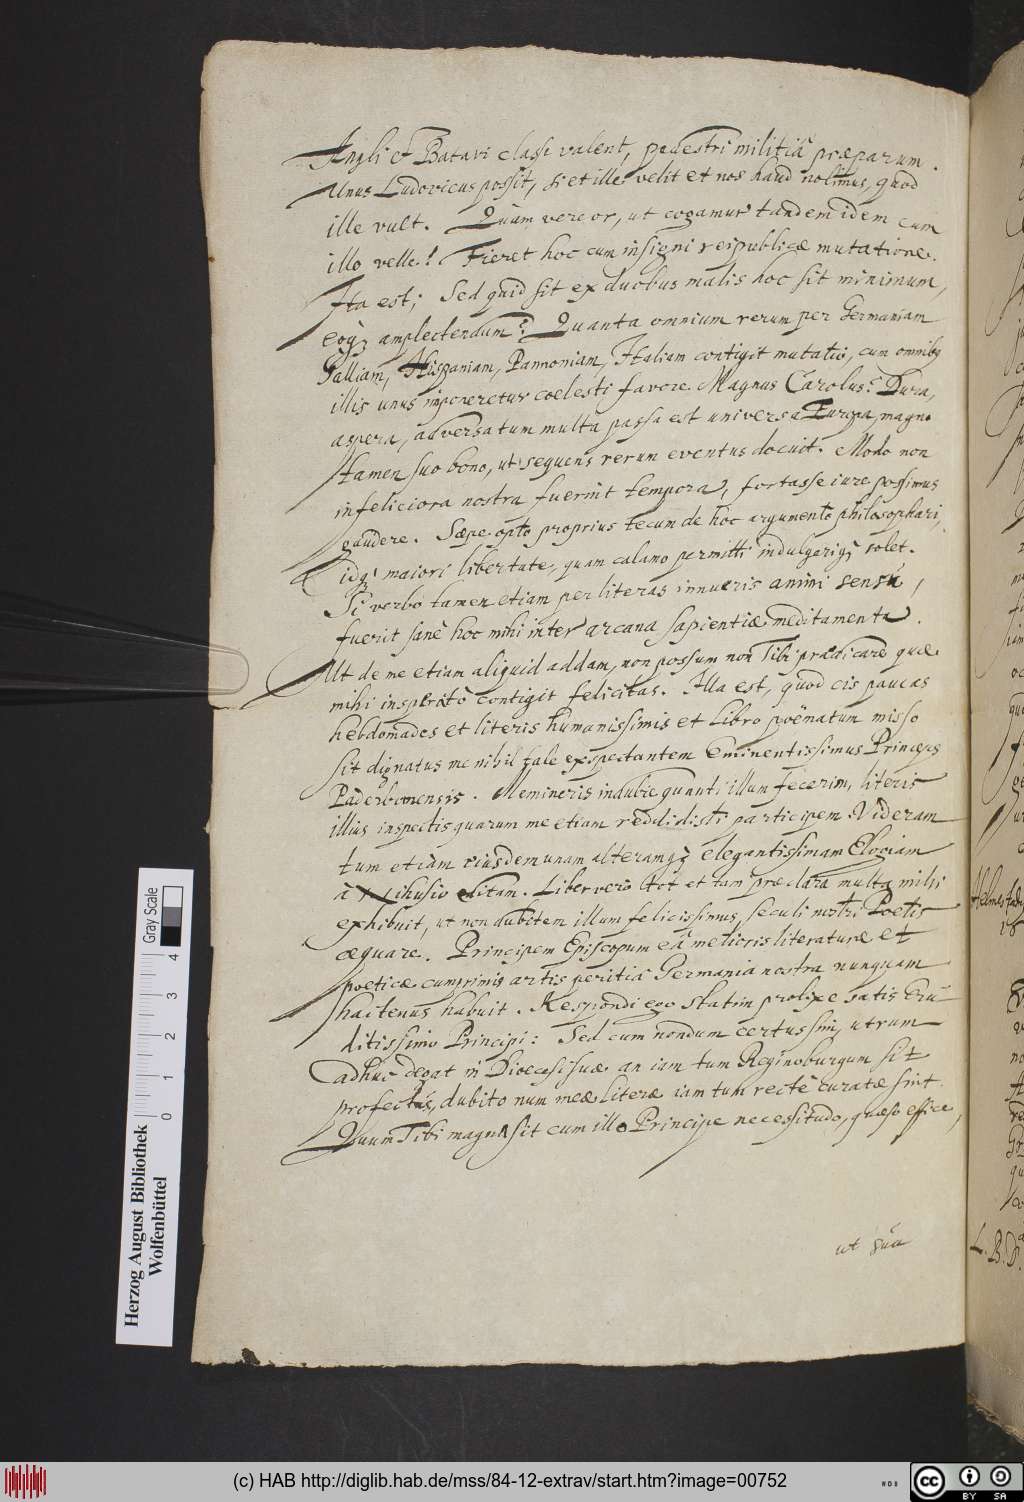 Angli et Batavi classi valent, pedestri militiâ præparum.
Unus Ludovicus possit, si et ille velit et nos haud nolimus, quod
ille vult. Quàm vereor, ut cogamur tandem idem cum
illo velle! Fieret hoc cum insigni reipublicæ mutatione.
Ita est; Sed quid sit ex duobus malis hoc sit minimum,
eoq; amplectendum? Quanta omnium rerum per Germaniam
Galliam, Hispaniam, Pannoniam, Italiam contigit mutatio, cum omnibq
illis unus imponeretur coelesti favore Magnus Carolus? Dura,
aspera, adversa tum multa passa est universa Europa, magno
tamen suo bono, ut sequens rerum eventus docuit. Modo non
infeliciora nostra fuerint tempora, fortasse iure possimus
gaudere. Sæpe opto proprius tecum de hoc argumento philosophari,
idq; maiori libertate, quam calamo permitti indulgeriq; solet.
Si verbo tamen etiam per literas innueris animi sensũ,
fuerit sanè hoc mihi inter arcana sapientiæ meditamenta.
Ut de me etiam aliquid addam, non possum non Tibi prædicare quæ
mihi insperatò contigit felicitas. Illa est, quòd cis paucas
hebdomades et literis humanissimis et Libro poëmatum misso
sit dignatus me nihil tale exspectantem Eminentissimus Princeps
Paderbornensis. Memineris indubie quanti illum fecerim, literis
illius inspectis quarum me etiam reddidisti participem. Videram
tum etiam eiusdem unam alteramq; elegantissimam Elogiam
à editam. Liber verò tot et tam præclara multa mihi
exhibuit, ut non dubitem illum felicissimis seculi nostri Poetis
æquare. Principem Episcopum eâ melioris literaturæ et
poeticæ cumprimis artis peritiâ Germania nostra nunquam
hactenus habuit. Respondi ego statim prolixe satis Eru-
ditissimo Principi: Sed cum nondum certus sim, utrum
adhuc degat in Dioecesi suæ an iam tum Reginoburgum sit
profectus, dubito num meæ literæ iam tum rectè curatæ sint.
Quum Tibi magna sit cum illo Principe necessitudo, quæso effice,
ut suâ
Herzog August Bibliothek
Wolfenbüttel
Gray Scale
0 1 2 3 4
(c) HAB http://diglib.hab.de/mss/84-12-extrav/start.htm?image=00752
WDB
cc BY SA